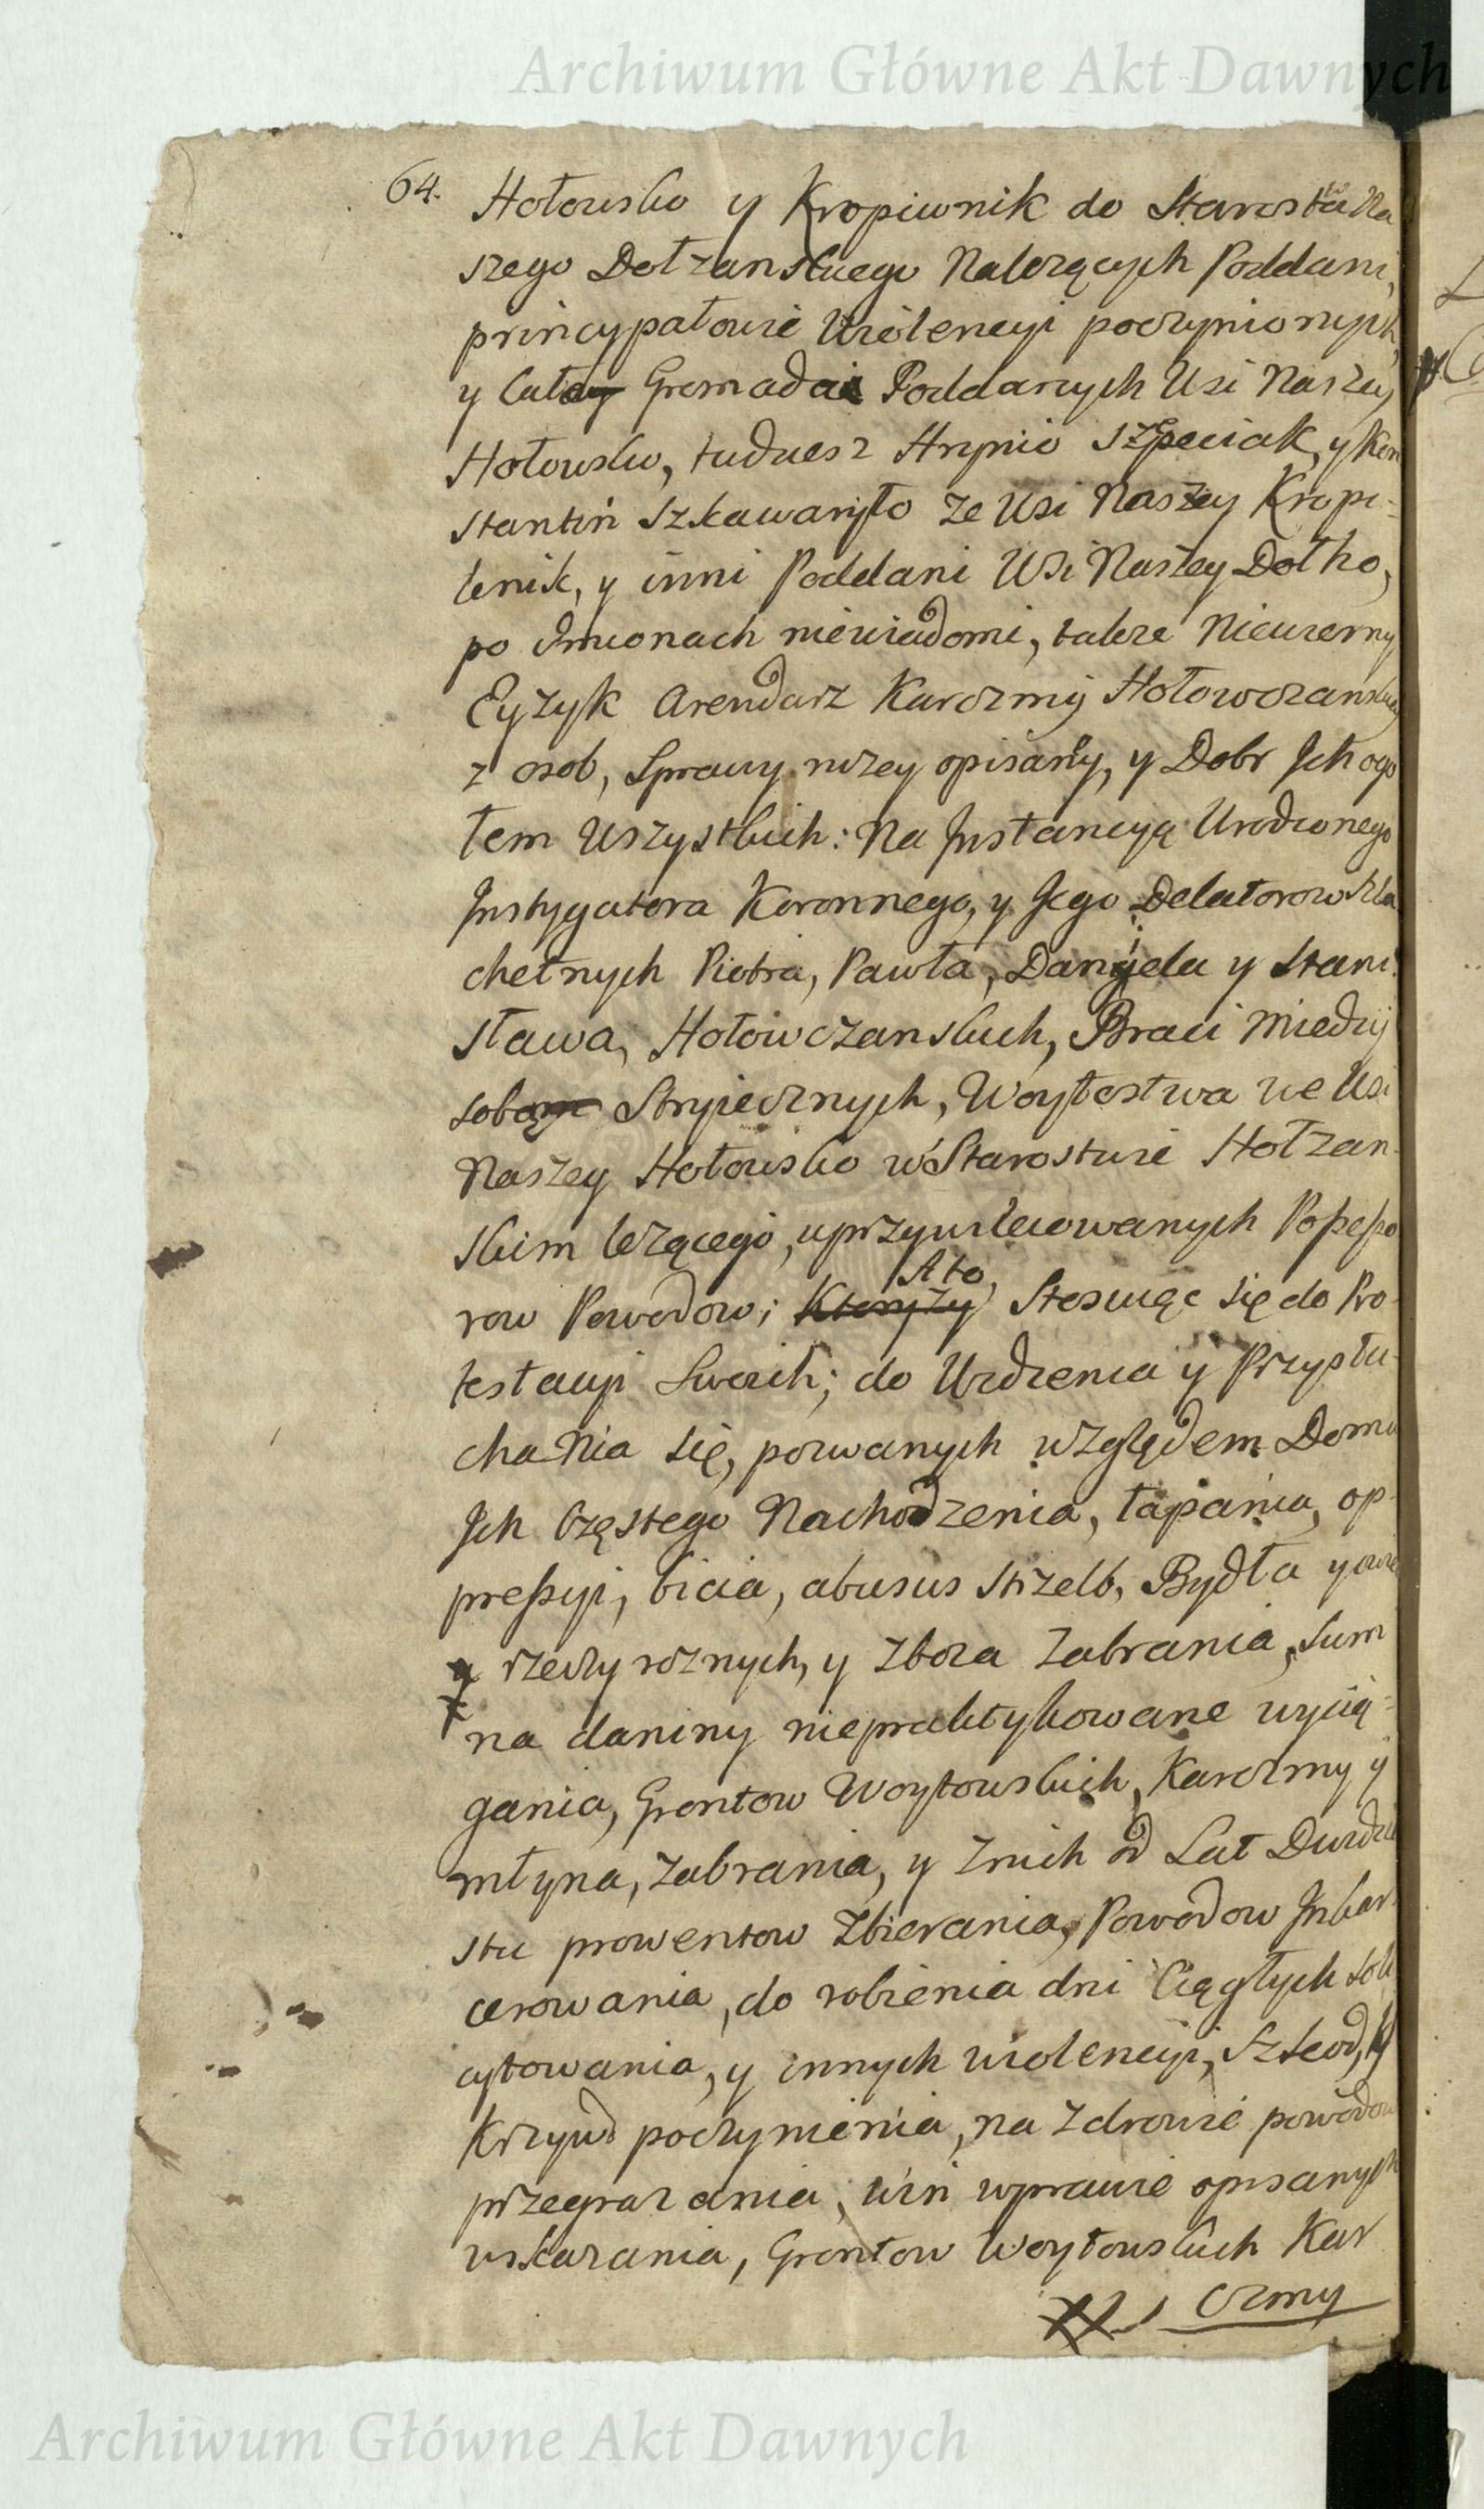 Archiwum Główne Akt Dawnych
64. Hołowsko y Kropiwnik do Starostwa Na
szego Dołzanskiego Nalezących Poddani,
princypałowie Wiolencyi poczynionych,
y Całey Gromada Poddanych Wsi Naszey
Hołowsko, tudziesz Hrynio Szpeciak, y Kon
stantin Szkawaryło ze Wsi Naszey Kropi-
wnik, y inni Poddani Wsi Naszey Dołho,
po Jmionach niewiadomi, takze Niewierny
Eyzyk Arendarz Karczmy Hołowczanskiey
z osob, Sprawy nizey opisaney, y Dobr Jch ogo
łem Wszystkich: Na Jnstancyą Urodzonego
Jnstygatora Koronnego, y Jego Delatorow Szla
chetnych Piotra, Pawła, Daniela y Stani
sława, Hołowczanskich, Braci miedzy
sobą Stryiecznych, Woytostwa we Wsi
Naszey Hołowsko w Starostwie Hołzan-
skim lezącego, uprzywileiowanych Possesso
row Powodow; Ktorzy A to, Stosuiąc się do Pro-
testacyi Swoich; do Widzenia y Przysłu-
chania się, pozwanych względem Domu
Jch Częstego Nachodzenia, łapania, op-
pressyi, bicia, abusus strzelb, Bydła y owie
y rzeczy roznych, y Zboza Zabrania, Sum
na daniny niepraktykowane wycią-
gania, Grontow Woytowskich, Karczmy y
młyna, zabrania, y Znich od Lat Dwudzie
stu prowentow Zbierania, Powodow Jnkar
cerowania, do robienia dni Ciągłych Soli
cytowania, y innych wiolencyi, Szkod, y
Krzywd poczynienia, na Zdrowie powodow
przegrazania, win wprawie opisanych
wskazania, Grontow Woytowskich Kar
czmy
Archiwum Główne Akt Dawnych